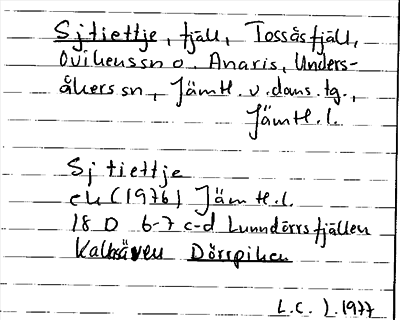 Sjtiettje, fjäll, Tossåsfjäll,
Ovikens sn o. Anaris, Unders-
åkers sn, Jämtl. v. doms. tg.,
Jämtl. l.
Sjtiettje
ek (1976) Jämtl. l.
18 D 6-7 c-d Lunndörrsfjällen
Dörrpiken
L.C. J. 1977